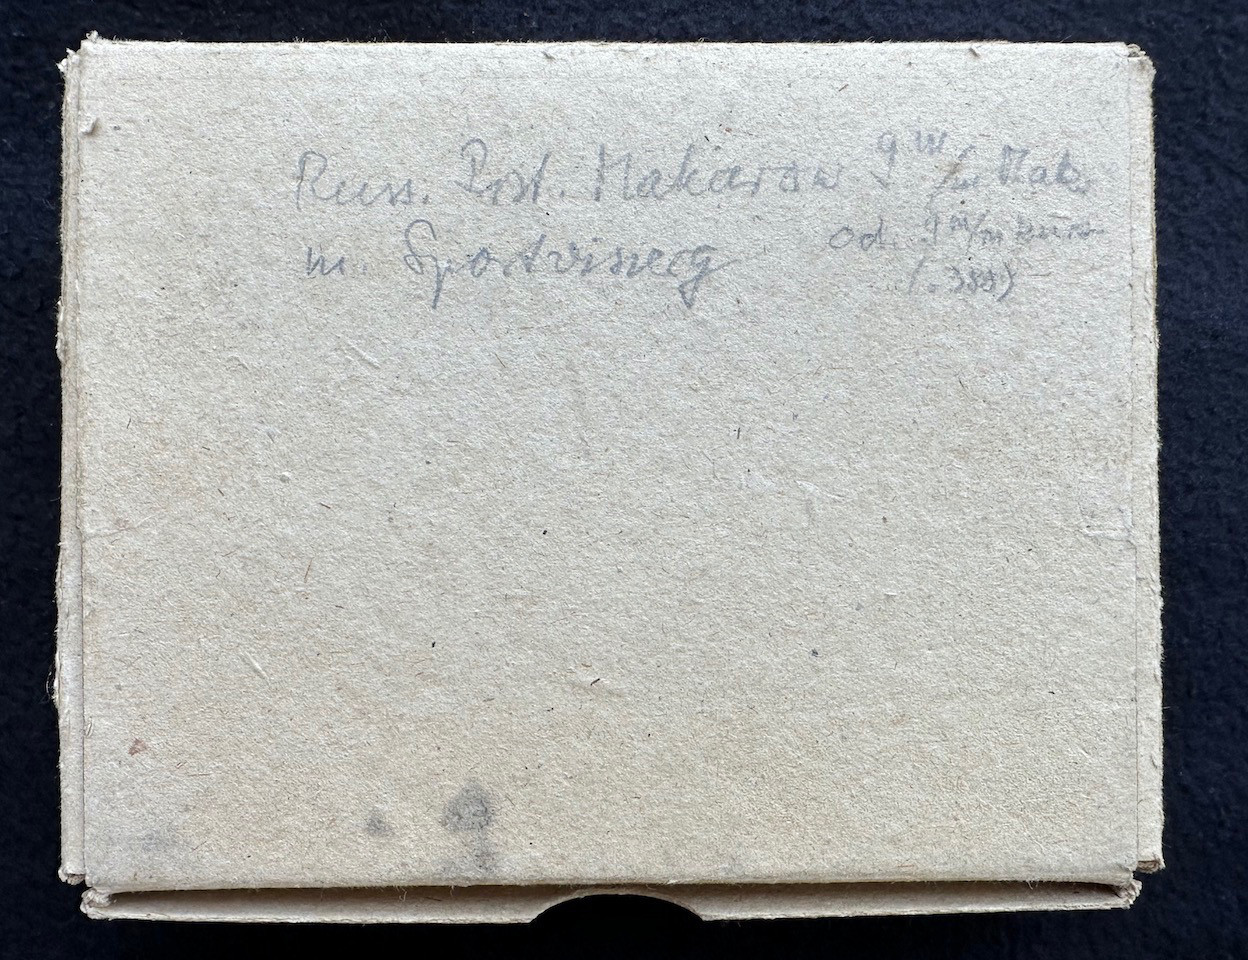 Russ. Pist. Makarow 9 m/m Mak.
m. Sportvisierg od. 9 m/m kurz